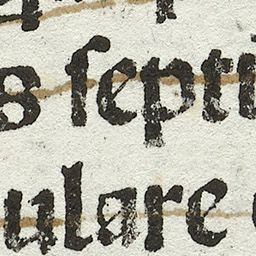 s ſeptu
ulare